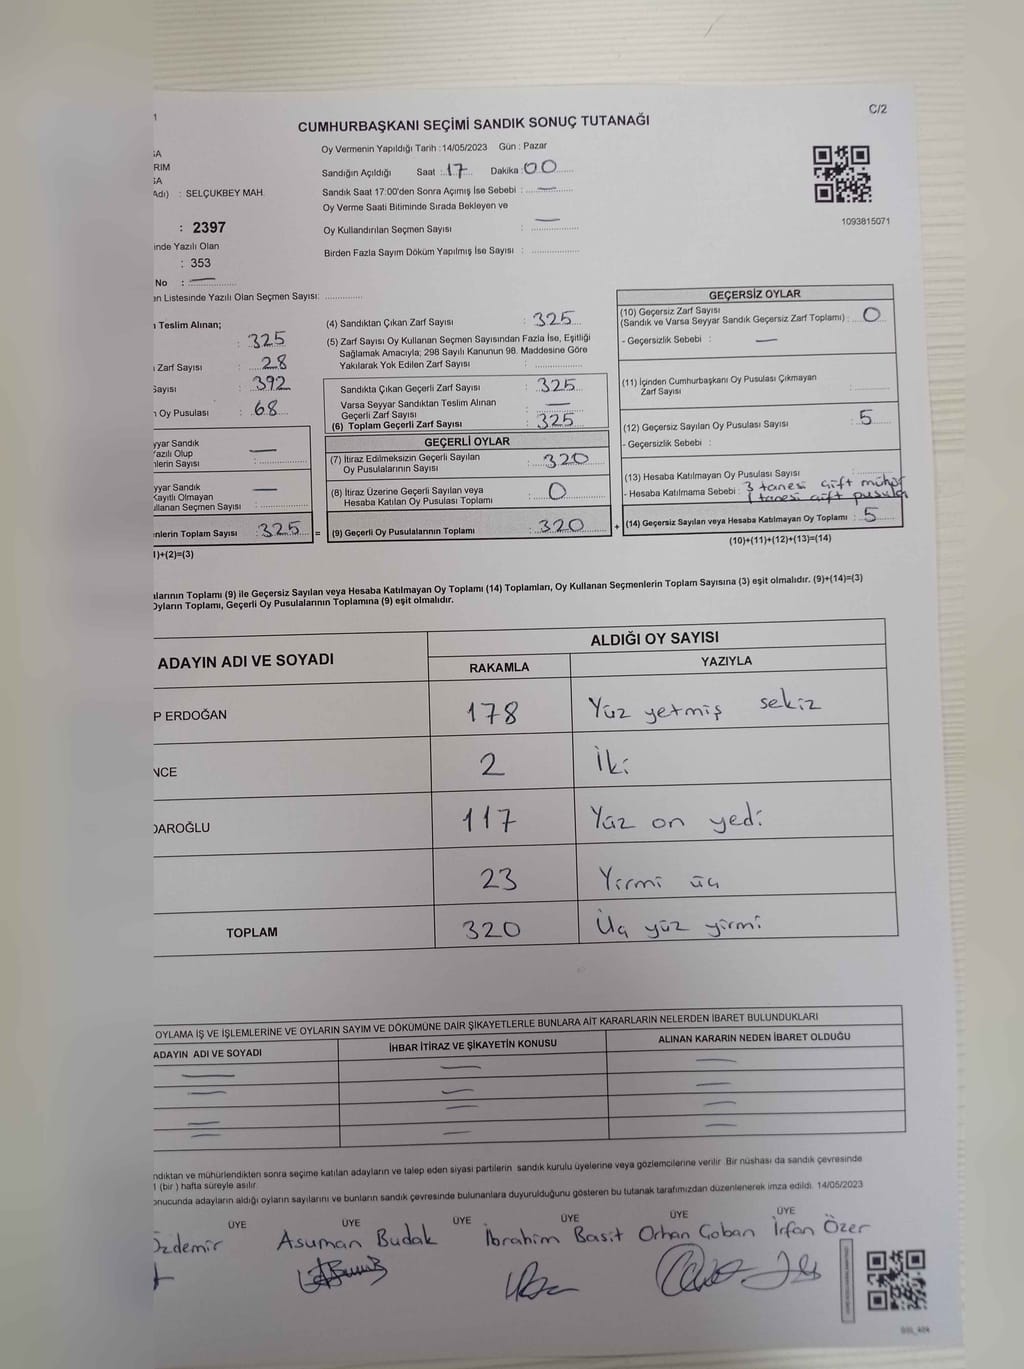 C/2
CUMHURBAŞKANI SEÇİMİ SANDIK SONUÇ TUTANAĞI
Oy Vermenin Yapıldığı Tarih :14/05/2023 Gün : Pazar
Sandığın Açıldığı Saat : 17 Dakika : 00
Sandık Saat 17:00'den Sonra Açımış İse Sebebi : —
Oy Verme Saati Bitiminde Sırada Bekleyen ve
Oy Kullandırılan Seçmen Sayısı : —
Birden Fazla Sayım Döküm Yapılmış İse Sayısı :
1093815071
1
SA
RIM
SA
Adı) : SELÇUKBEY MAH.
: 2397
inde Yazılı Olan
: 353
No : —
en Listesinde Yazılı Olan Seçmen Sayısı:
ı Teslim Alınan;
: 325
ı Zarf Sayısı : 28
Sayısı : 392
ı Oy Pusulası : 68
yyar Sandık
Yazılı Olup
nlerin Sayısı : —
yyar Sandık
Kayıtlı Olmayan
ullanan Seçmen Sayısı : —
enlerin Toplam Sayısı : 325 =
1)+(2)=(3)
(4) Sandıktan Çıkan Zarf Sayısı : 325
(5) Zarf Sayısı Oy Kullanan Seçmen Sayısından Fazla İse, Eşitliği
Sağlamak Amacıyla; 298 Sayılı Kanunun 98. Maddesine Göre
Yakılarak Yok Edilen Zarf Sayısı :
Sandıkta Çıkan Geçerli Zarf Sayısı : 325
Varsa Seyyar Sandıktan Teslim Alınan
Geçerli Zarf Sayısı : —
(6) Toplam Geçerli Zarf Sayısı : 325
GEÇERLİ OYLAR
(7) İtiraz Edilmeksizin Geçerli Sayılan
Oy Pusulalarının Sayısı : 320
(8) İtiraz Üzerine Geçerli Sayılan veya
Hesaba Katılan Oy Pusulası Toplamı : 0
(9) Geçerli Oy Pusulalarının Toplamı : 320 +
GEÇERSİZ OYLAR
(10) Geçersiz Zarf Sayısı
(Sandık ve Varsa Seyyar Sandık Geçersiz Zarf Toplamı) : 0
- Geçersizlik Sebebi : —
(11) İçinden Cumhurbaşkanı Oy Pusulası Çıkmayan
Zarf Sayısı :
(12) Geçersiz Sayılan Oy Pusulası Sayısı : 5
- Geçersizlik Sebebi :
(13) Hesaba Katılmayan Oy Pusulası Sayısı :
- Hesaba Katılmama Sebebi : 3 tanesi çift mühür
1 tanesi çift pusula
(14) Geçersiz Sayılan veya Hesaba Katılmayan Oy Toplamı : 5
(10)+(11)+(12)+(13)=(14)
alarının Toplamı (9) ile Geçersiz Sayılan veya Hesaba Katılmayan Oy Toplamı (14) Toplamları, Oy Kullanan Seçmenlerin Toplam Sayısına (3) eşit olmalıdır. (9)+(14)=(3)
Oyların Toplamı, Geçerli Oy Pusulalarının Toplamına (9) eşit olmalıdır.
ADAYIN ADI VE SOYADI
ALDIĞI OY SAYISI
RAKAMLA YAZIYLA
P ERDOĞAN 178 Yüz yetmiş sekiz
NCE 2 İki
DAROĞLU 117 Yüz on yedi
23 Yirmi üç
TOPLAM 320 Üç yüz yirmi
OYLAMA İŞ VE İŞLEMLERİNE VE OYLARIN SAYIM VE DÖKÜMÜNE DAİR ŞİKAYETLERLE BUNLARA AİT KARARLARIN NELERDEN İBARET BULUNDUKLARI
ADAYIN ADI VE SOYADI İHBAR İTİRAZ VE ŞİKAYETİN KONUSU ALINAN KARARIN NEDEN İBARET OLDUĞU
ndıktan ve mühürlendikten sonra seçime katılan adayların ve talep eden siyasi partilerin sandık kurulu üyelerine veya gözlemcilerine verilir. Bir nüshası da sandık çevresinde
1 (bir ) hafta süreyle asılır.
onucunda adayların aldığı oyların sayılarını ve bunların sandık çevresinde bulunanlara duyurulduğunu gösteren bu tutanak tarafımızdan düzenlenerek imza edildi. 14/05/2023
ÜYE ÜYE ÜYE ÜYE ÜYE ÜYE
Özdemir Asuman Budak İbrahim Basit Orhan Çoban İrfan Özer